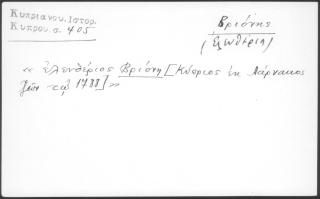 Κυπριανου. Ιστορ.
Κυπρου. σ. 405
Βριόνης
(Ελευθέριος)
« ἐλευθέριος Βριόνη [Κύπριος ἐκ Λάρνακος
ζῶν τῷ 1788] »